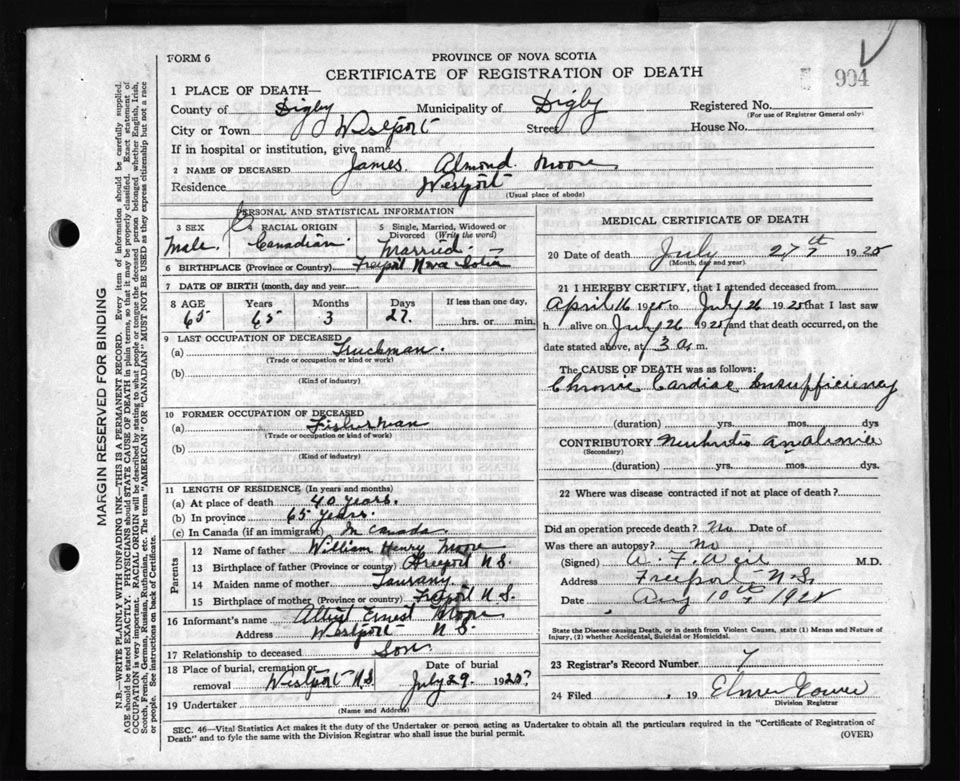 FORM 6
PROVINCE OF NOVA SCOTIA
CERTIFICATE OF REGISTRATION OF DEATH
904
1 PLACE OF DEATH—
County of Digby Municipality of Digby Registered No.
(For use of Registrar General only)
City or Town Westport Street House No.
If in hospital or institution, give name
2 NAME OF DECEASED James Almond Moore
Residence Westport
(Usual place of abode)
PERSONAL AND STATISTICAL INFORMATION
3 SEX Male. 4 RACIAL ORIGIN Canadian. 5 Single, Married, Widowed or Divorced (Write the word) Married.
6 BIRTHPLACE (Province or Country) Freeport Nova Scotia
7 DATE OF BIRTH (month, day and year)
8 AGE Years Months Days If less than one day,
65 65 3 27. hrs. or min.
9 LAST OCCUPATION OF DECEASED
(a) Truckman.
(Trade or occupation or kind of work)
(b)
(Kind of industry)
10 FORMER OCCUPATION OF DECEASED
(a) Fisherman
(Trade or occupation or kind of work)
(b)
(Kind of industry)
11 LENGTH OF RESIDENCE (In years and months)
(a) At place of death 40 years.
(b) In province 65 years.
(c) In Canada (if an immigrant) In Canada.
Parents
12 Name of father William Henry Moore
13 Birthplace of father (Province or country) Freeport N.S.
14 Maiden name of mother
15 Birthplace of mother (Province or country) Freeport N.S.
16 Informant's name Ernest Moore
Address Westport N.S.
17 Relationship to deceased Son.
18 Place of burial, cremation or removal Westport N.S. Date of burial July 29. 192
19 Undertaker
(Name and Address)
MEDICAL CERTIFICATE OF DEATH
20 Date of death July 27th 192
(Month, day and year)
21 I HEREBY CERTIFY, that I attended deceased from
April 16 192 to July 26 192 that I last saw
h alive on July 26 192 and that death occurred, on the
date stated above, at 3 a. m.
The CAUSE OF DEATH was as follows:
Chronic Cardiac Insufficiency
(duration) yrs. mos. dys
CONTRIBUTORY
(Secondary)
(duration) yrs. mos. dys.
22 Where was disease contracted if not at place of death?
Did an operation precede death? No Date of
Was there an autopsy? No
(Signed) A. F. Weir M.D.
Address Freeport N.S.
Date Aug 10th 192
State the Disease causing Death, or in death from Violent Causes, state (1) Means and Nature of
Injury, (2) whether Accidental, Suicidal or Homicidal.
23 Registrar's Record Number 7
24 Filed , 19 Elmer
Division Registrar
SEC. 46—Vital Statistics Act makes it the duty of the Undertaker or person acting as Undertaker to obtain all the particulars required in the "Certificate of Registration of
Death" and to fyle the same with the Division Registrar who shall issue the burial permit.
(OVER)
MARGIN RESERVED FOR BINDING
N.B.—WRITE PLAINLY WITH UNFADING INK—THIS IS A PERMANENT RECORD. Every item of information should be carefully supplied.
AGE should be stated EXACTLY. PHYSICIANS should STATE CAUSE OF DEATH in plain terms, so that it may be properly classified. Exact statement of
OCCUPATION is very important. RACIAL ORIGIN will be described by stating to what people or tongue the deceased person belonged whether English, Irish,
Scotch, French, German, Russian, Ruthenian, etc. The terms "AMERICAN" OR "CANADIAN" MUST NOT BE USED as they express citizenship but not a race
or people. See instructions on back of Certificate.